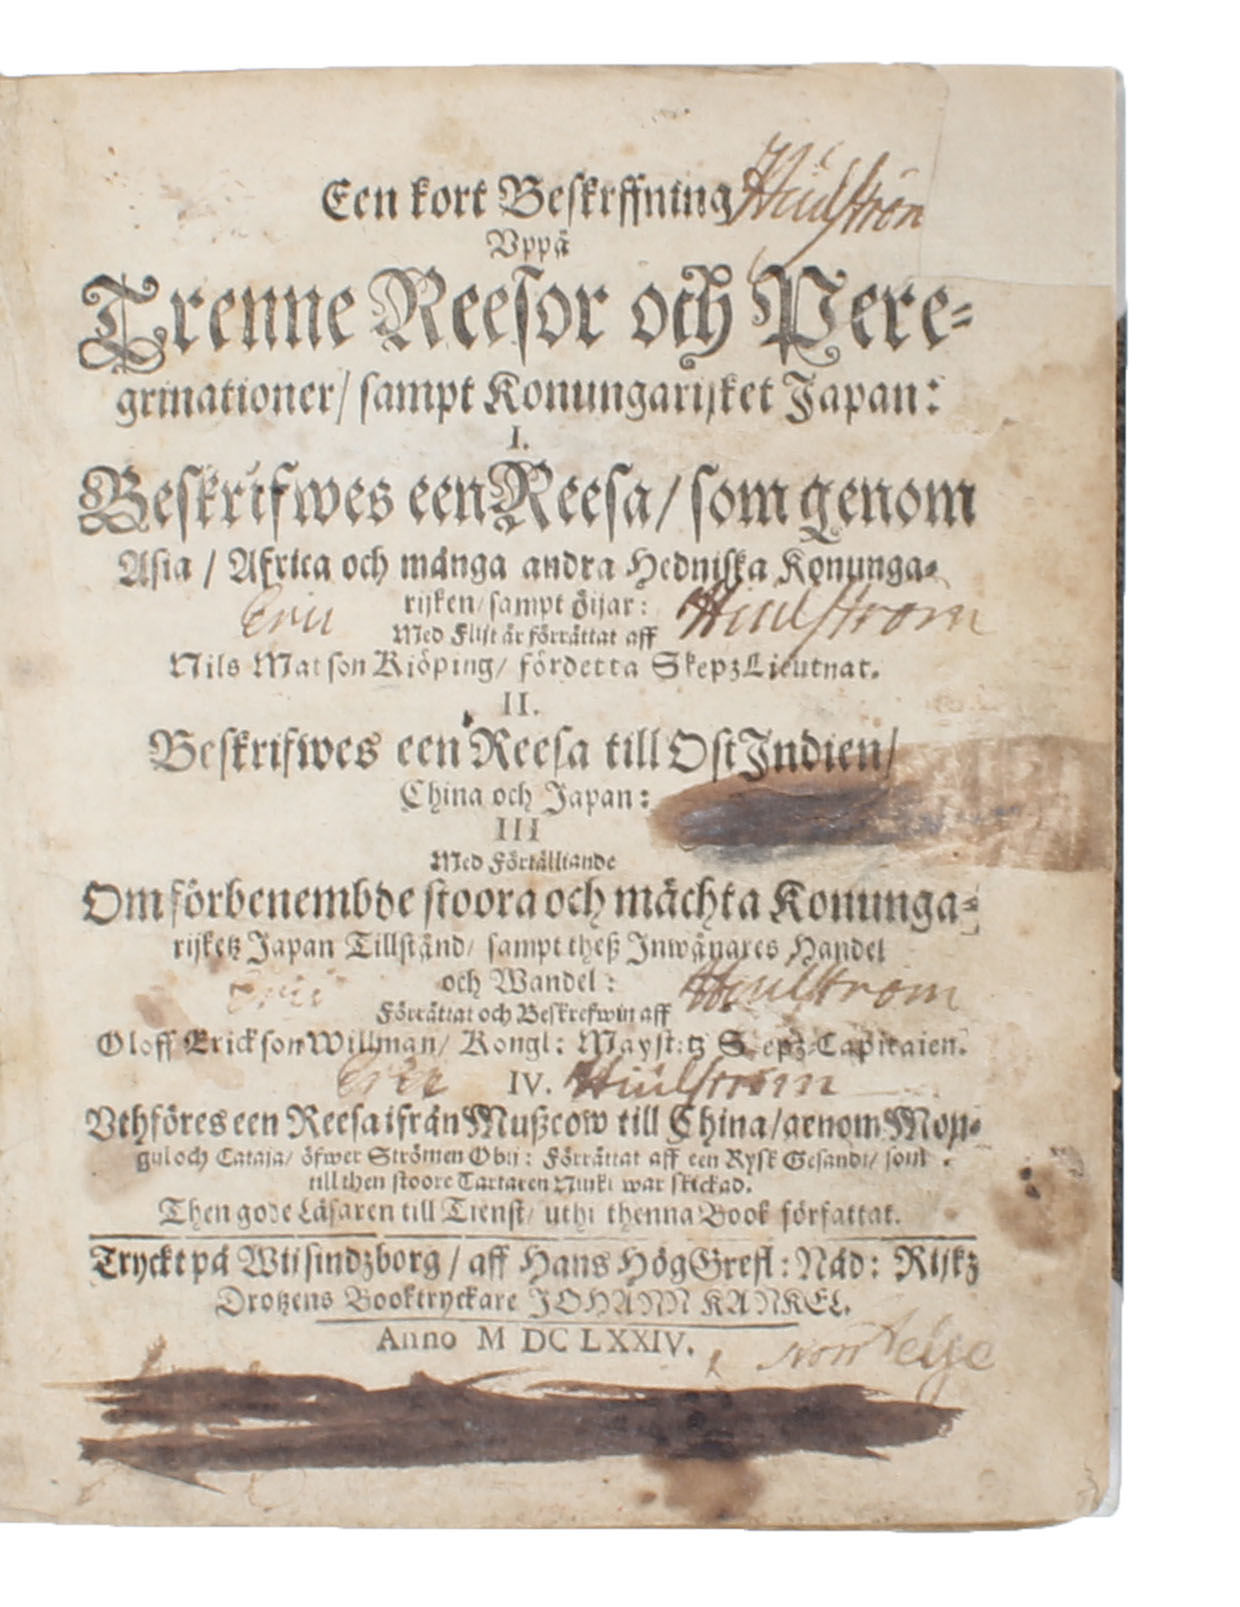 Een kort Beskrffning Hiulström
Vppå
Trenne Reesor och Pere-
grinationer/ sampt Konungarijket Japan:
I.
Beskrifwes een Reesa/ som genom
Asia / Africa och många andra Hedniska Konunga-
rijken/ sampt öijar:
Eric Hiulström
Med Flijt är förrättat aff
Nils Matson Kiöping/ fördetta SkepzLieutnat.
II.
Beskrifwes een Reesa till OstIndien/
China och Japan:
III
Med Förtälliande
Om förbenembde stoora och mächta Konunga-
rijketz Japan Tillstånd/ sampt theß Inwånares Handel
och Wandel:
Eric Hiulström
Förrättat och Beskrefwin aff
Oloff Erickson Willman/ Kongl: Mayst:tz Skepz-Capitaien.
Eric IV. Hiulström
Vthföres een Reesa ifrån Mußcow till China/ genom Mon-
gul och Cataja/ öfwer Strömen Obij: Förrättat aff een Rysk Gesandt/ som
till then stoore Tartaren Niuki war skickad.
Then gode Läsaren till Tienst/ uthi thenna Book författat.
Tryckt på Wijsindzborg/ aff Hans HögGrefl: Nåd: Rijkz
Drotzens Booktryckare JOHANN KANKEL.
Anno M DC LXXIV.